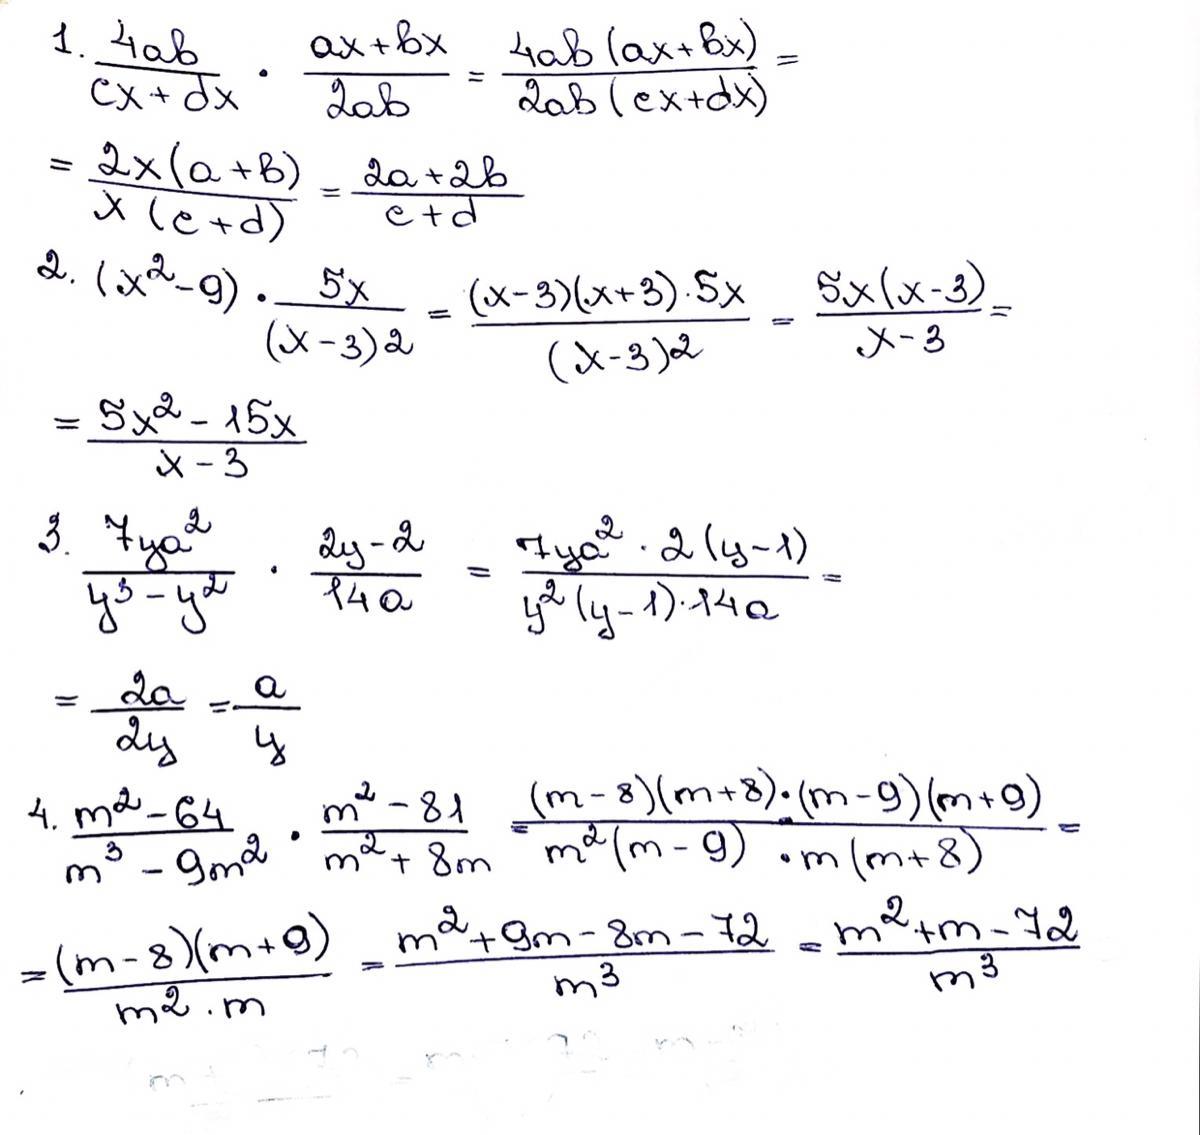 1. 4ab/(cx+dx) · (ax+bx)/(2ab) = 4ab(ax+bx)/(2ab(cx+dx)) =
= 2x(a+b)/(x(c+d)) = (2a+2b)/(c+d)
2. (x²-9) · 5x/((x-3)2) = (x-3)(x+3)·5x/((x-3)2) = 5x(x-3)/(x-3) =
= (5x²-15x)/(x-3)
3. 7ya²/(y³-y²) · (2y-2)/(14a) = 7ya²·2(y-1)/(y²(y-1)·14a) =
= 2a/2y = a/y
4. (m²-64)/(m³-9m²) · (m²-81)/(m²+8m) = (m-8)(m+8)·(m-9)(m+9)/(m²(m-9)·m(m+8)) =
= (m-8)(m+9)/(m²·m) = (m²+9m-8m-72)/m³ = (m²+m-72)/m³